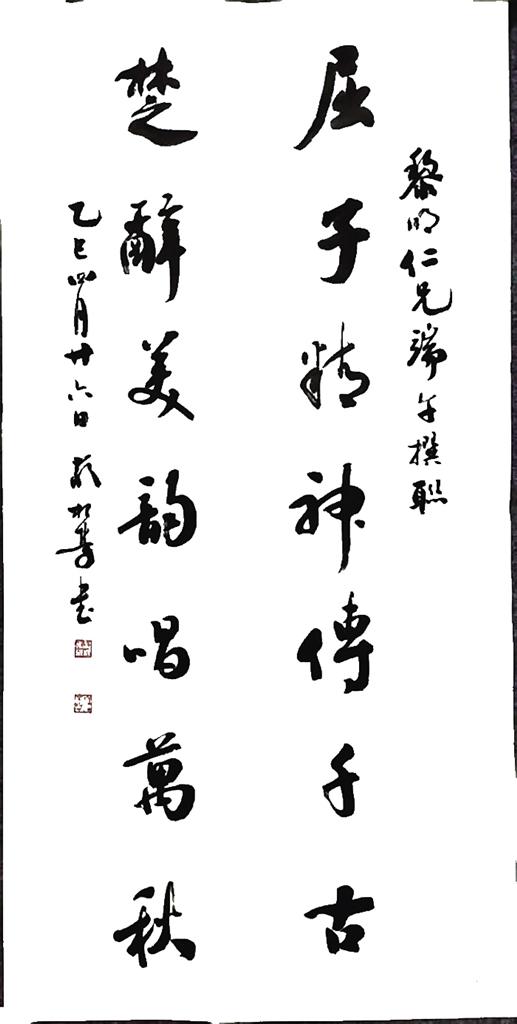 黎明仁兄端午撰聯
屈子精神傳千古
楚辭美韵唱萬秋
乙巳四月廿六日 松壽书